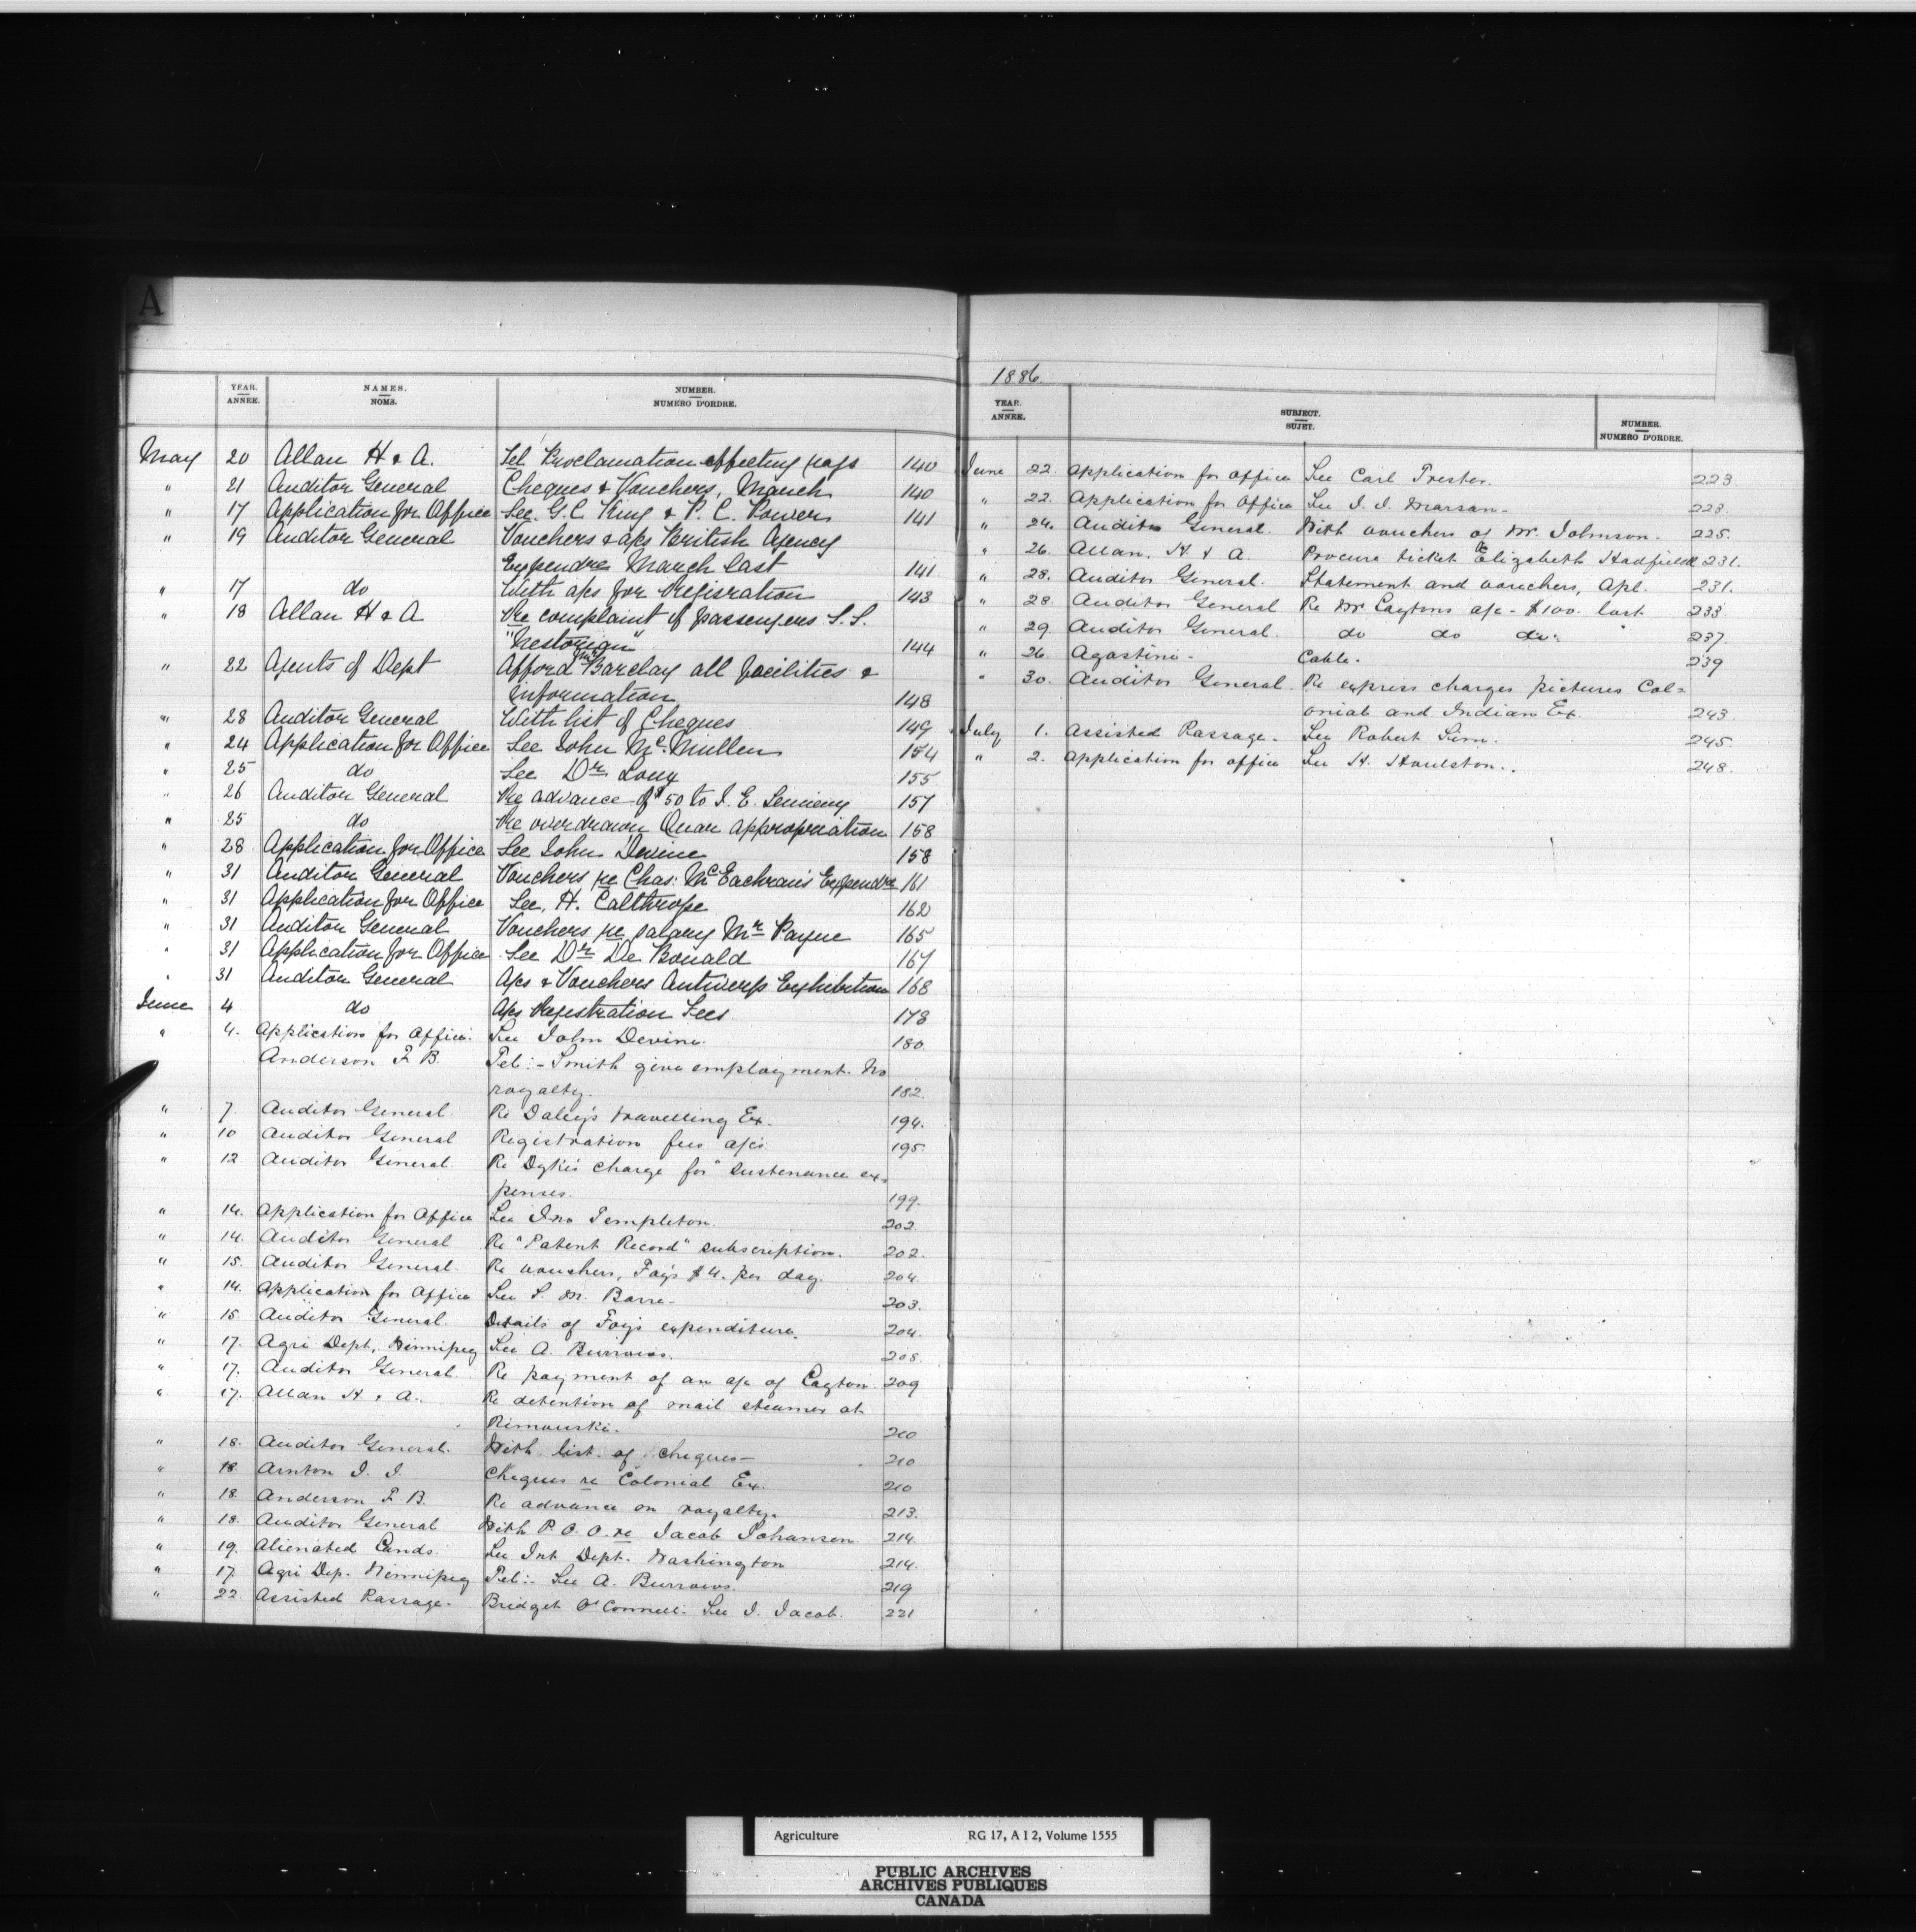 A
YEAR. ANNEE. NAMES. NOMS. NUMBER. NUMERO D'ORDRE.
May 20 Allan H & A. Tel Proclamation effecting pass 140
" 21 Auditor General Cheques & Vouchers, March 140
" 17 Application for Office See G.C. King & P. C. Powers 141
" 19 Auditor General Vouchers & a/cs British Agency
Expendre March last 141
" 17 do With a/cs for Regisration 143
" 18 Allan H & A Re complaint of passengers S.S.
"Nestorian" 144
" 22 Agents of Dept Afford Mr Barclay all facilities &
information 148
" 28 Auditor General With list of Cheques 149
" 24 Application for Office See John McMullen 154
" 25 do See Dr Long 155
" 26 Auditor General Re advance of $50 to J. E. 157
" 25 do Re overdrawn Quar appropriation 158
" 28 Application for Office See John Devine 158
" 31 Auditor General Vouchers re Chas: McEachran's Expendre 161
" 31 Application for Office See, H. Calthrope 162
" 31 Auditor General Vouchers re salary Mr Payne 165
" 31 Application for Office See Dr De Bonald 167
" 31 Auditor General A/cs & Vouchers Antwerp Exhibition 168
June 4 do A/cs Registration Fees 178
" 4. Application for Office. See John Devine. 180.
Anderson F. B. Tel:- Smith give employment. No
royalty. 182.
" 7. Auditor General. Re Daley's travelling Ex. 194.
" 10 Auditor General Registration fees a/cs 195.
" 12 Auditor General. Re Dyke's charge for "sustenance ex-
penses. 199.
" 14. Application for Office See Jno Templeton. 202.
" 14. Auditor General Re "Patent Record" subscription. 202.
" 15. Auditor General. Re vouchers, Foy's $4. per day. 204.
" 14. Application for Office See S. M. Barre. 203.
" 15. Auditor General. Details of Foy's expenditure. 204.
" 17. Agri Dept, Winnipeg See A. Burrows. 208.
" 17. Auditor General. Re payment of an a/c of Cayton. 209
" 17. Allan H. & A. Re detention of mail steamer at
Rimouski. 210
" 18. Auditor General. With list of cheques- 210
" 18. Arnton J. J. Cheques re Colonial Ex. 210
" 18. Anderson F. B. Re advance on royalty. 213.
" 18. Auditor General With P. O. O. re Jacob Johansen 214.
" 19. Alienated Lands. See Int Dept. Washington 214.
" 17. Agri Dep. Winnipeg Tel:- See A. Burrows. 219
" 22. Assisted Passage. Bridget O'Connell: See J. Jacob. 221
1886.
YEAR. ANNEE. SUBJECT. SUJET. NUMBER. NUMERO D'ORDRE.
June 22. Application for Office See Carl Trester. 223.
" 22. Application for Office See J. J. Marsan. 223.
" 24. Auditor General. With vouchers of Mr. Johnson. 225.
" 26. Allan, H. & A. Procure ticket Elizabeth Hadfield 231.
" 28. Auditor General. Statement and vouchers, Apl. 231.
" 28. Auditor General Re Mr Caytons a/c - $100. lost. 233
" 29. Auditor General. do do do. 237.
" 26. Agostini - Cable. 239
" 30. Auditor General. Re express charges pictures Col=
onial and Indian Ex. 243.
July 1. Assisted Passage. See Robert Sim. 245.
" 2. Application for office See H. Houlston. 248.
Agriculture RG 17, A I 2, Volume 1555
PUBLIC ARCHIVES
ARCHIVES PUBLIQUES
CANADA